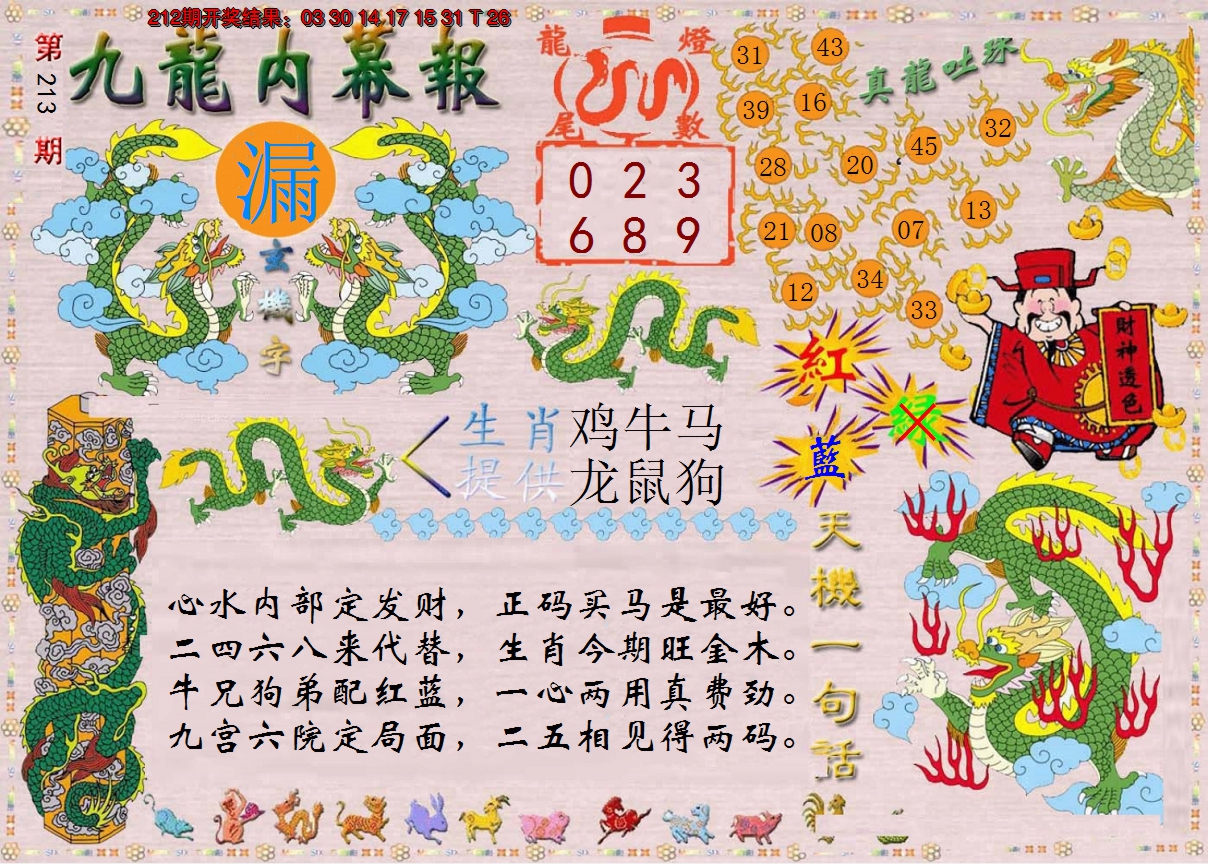 212期开奖结果：03 30 14 17 15 31 T 26
第213期
九龍内幕報
漏
玄機字
龍燈
尾數
0 2 3
6 8 9
真龍吐珠
31
43
39
16
45
32
28
20
13
21
08
07
34
12
33
紅
绿
藍
財神透色
生肖 鸡牛马
提供 龙鼠狗
天機一句話
心水内部定发财，正码买马是最好。
二四六八来代替，生肖今期旺金木。
牛兄狗弟配红蓝，一心两用真费劲。
九宫六院定局面，二五相见得两码。